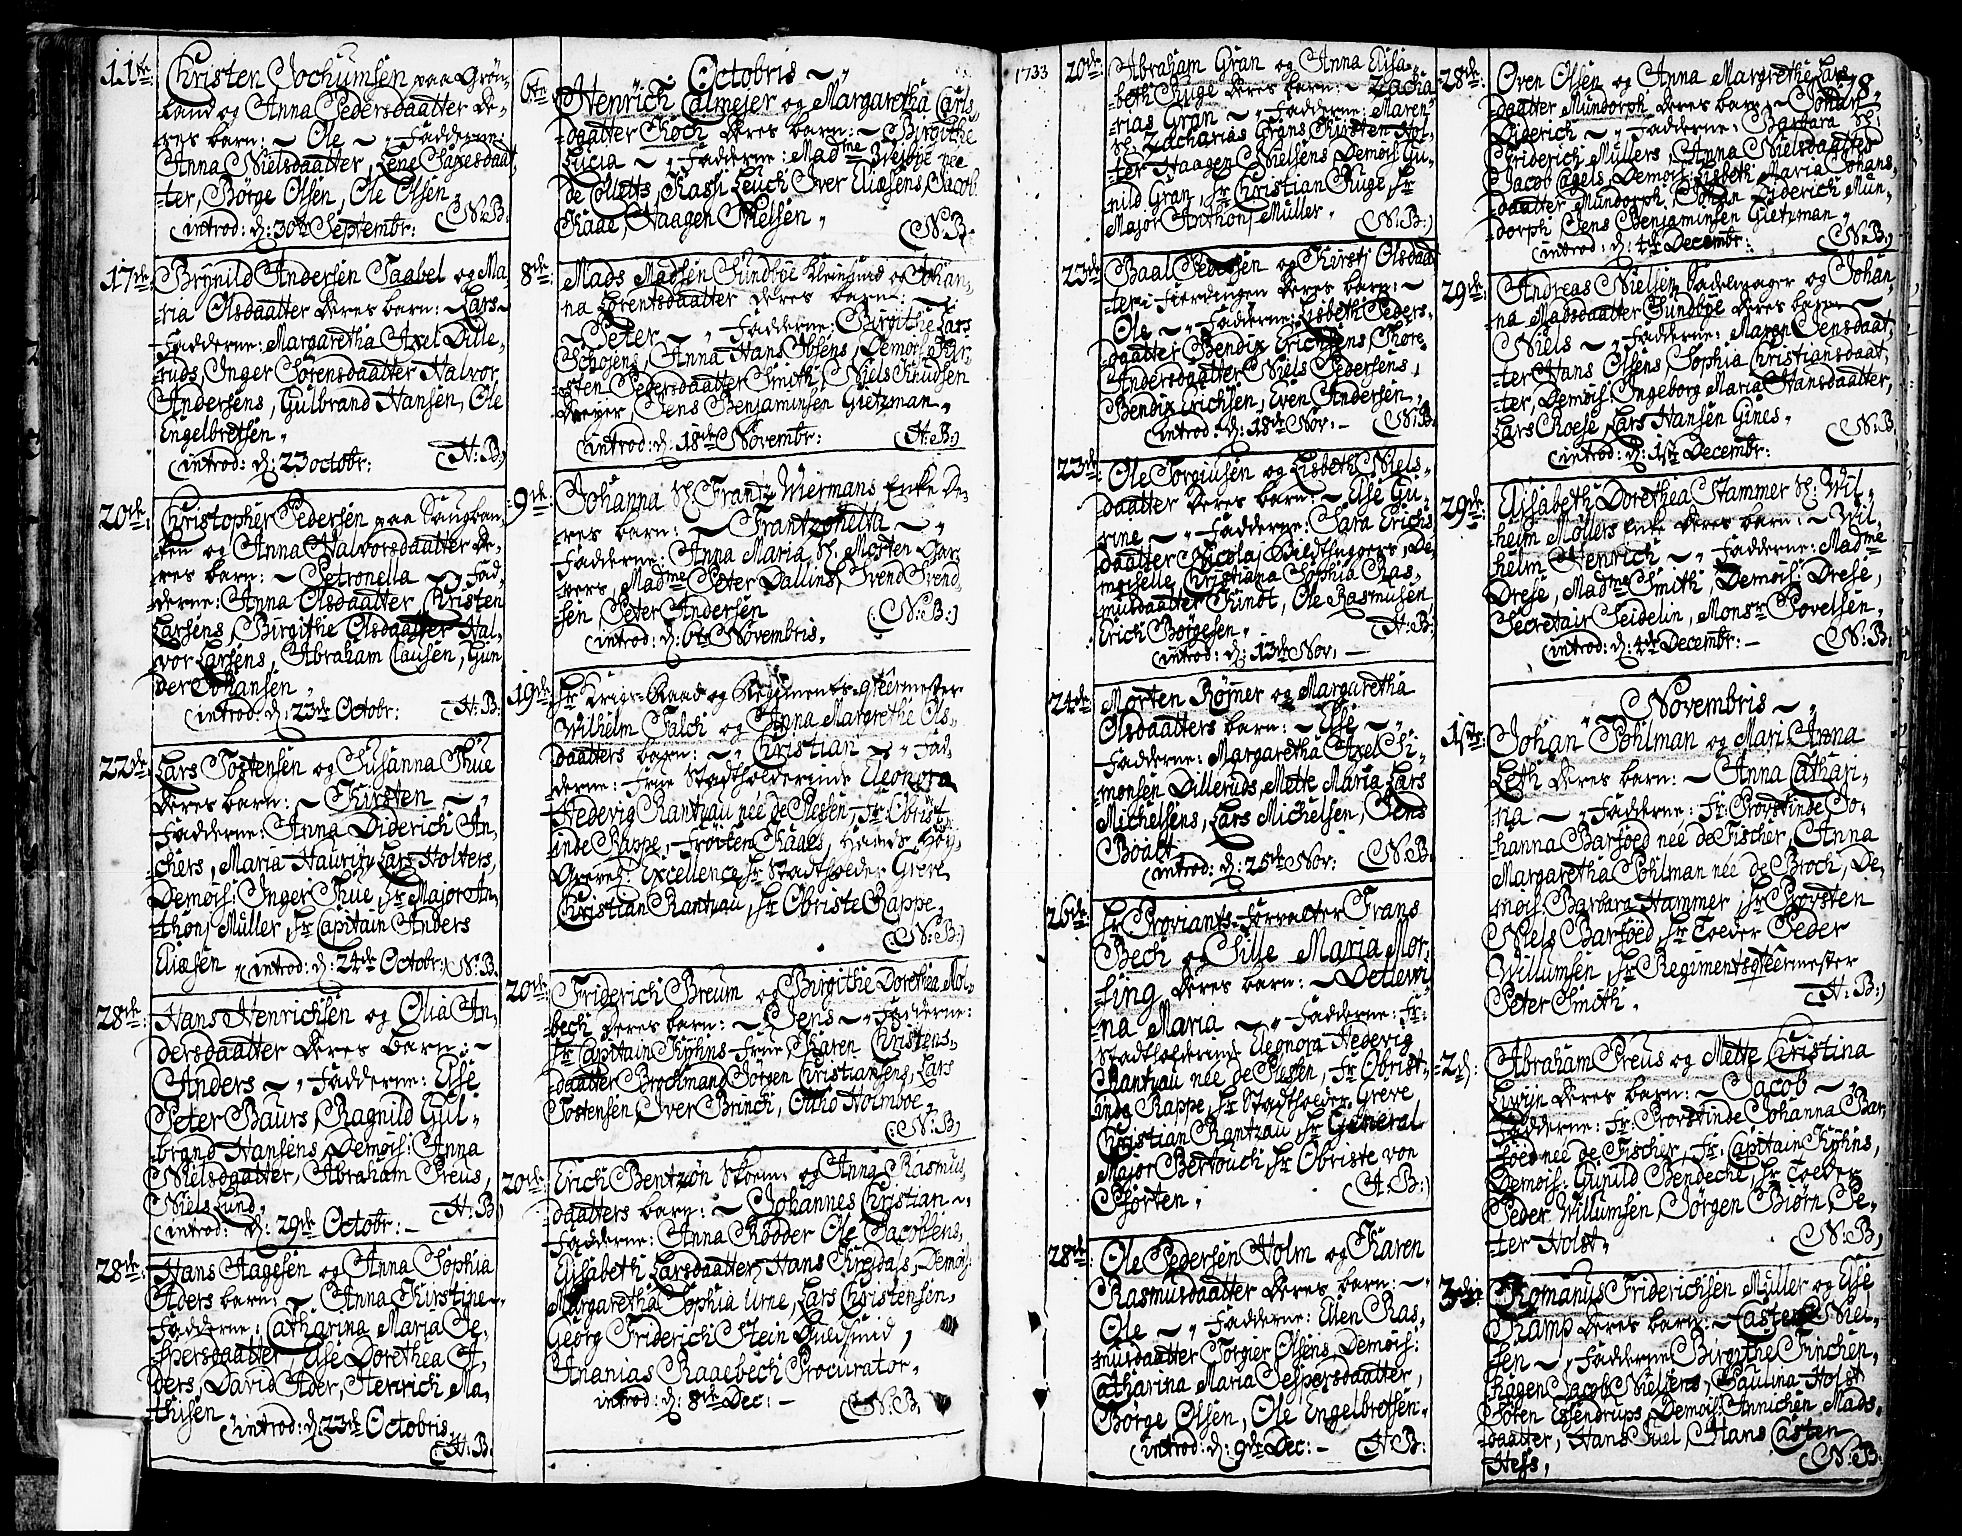 11te: Christen Jochumsen paa Grøn-
land og Anna Pedersdaatter de-
res barn: ~ Ole ~ „ Fadderne:
Anna Nielsdaatter, Lene
-ter, Børge Olsen, Ole Olsen „
(introd: d: 30te Septembr: (N:B:
17de: Brynild Andersen Taabel og Ma-
ria Olsdaatter deres barn: ~ Lars ~
Fadderne: Margaretha Axel Dille-
ruds, Inger Sørensdaatter Halvor
Andersens, Gulbrand Hansen, Ole
Engelbretsen „
(introd: d: 23 octobr: (H:B)
20de: Christopher Pedersen paa Saugban-
ken og Anna Halvorsdaatter de-
res barn: ~ Petronella ~ „ Fad-
derne: Anna Olsdaatter Christen
Larsens, Birgithe Olsdaatter Hal-
vor Larsens, Abraham Clausen, Gun
der Johansen „
(introd: d: 23de Octobr: (H:B:
22de: Lars Tostensen og Susanna Thue
deres barn: ~ Kirsten ~ „
Fadderne: Anna Diderich An-
chers, Maria Hauritz Lars Holters,
Demois: Inger Thue, Hr Major An-
thonj Müller, Hr Capitain Anders
Eliæsen „ (introd: d: 24de Octobr: N:B:
28de: Hans Henrichsen og Olia An-
dersdaatter deres barn: ~
Anders ~ „ Fadderne: Else
Peter Baurs, Ragnild Gul-
brand Hansens, Demois: Anna
Nielsdaatter, Abraham Preus,
Niels Lund „ (H:B)
(introd: d: 29de Octobr: -
28de: Hans Aagesen og Anna Sophia
Aders barn: ~ Anna Kirstine ~
Fadderne: Catharina Maria Je-
spersdaatter, Else Dorethea A-
ders, David Ader, Henrich Ma-
thisen „
(introd: d: 23de Octobris,
(H:B:
~ „ Octobris ~ „
6te: Henrich Calmejer og Margaretha Carls
daatter Koch deres barn: ~ Birgithe
Lucia ~ „ Fadderne: Madme nee
de Colletts, Karen Leuch Iver Eliæsens, Jacob
Kaae, Haagen Nielsen „
(N:B:
8de: Mads Madsen Sundbye Kleinsmid og Johan-
na Lorentsdaatter deres barn: ~
~ Peter ~ „ Fadderne: Birgithe Lars
Schojens, Anna Hans Ibsens, Demois Kir-
sten Pedersdaatter Smith, Niels Knudsen
dreyer, Jens Benjaminsen Gietzman „
(introd: d: 18de Novembr: (H:B:)
9de: Johanna Sl: Frantz Miermans Enke de-
res barn: ~ Frantzonetta ~ „
Fadderne: Anna Maria Sl: Morten Gar-
vers, Madme Peter Dallins, Svend Svend-
sen, Peter Andersen (N:B:)
(introd: d: 6te Novembris.
19de: Hr Krigs-Raad og Regiments-qvteermester
Wilhelm Falch og Anna Margrethe Ols-
daatters barn: ~ „ Christian ~ „ Fad-
derne: Frue Stadtholderinde Eleonora
Hedevig Rantzau neé de Plesen, Fr: Obrist-
inde Rappe, Frøyken Kaaes, Hands Høy-
Grevel: Excellence Hr Stadtholder Greve
Christian Rantzau, Hr Obriste Rappe.
(N:B:)
20de: Friderich Breum og Birgithe Dorethea Mol-
bech deres barn: ~ Jens ~ „ Fadderne:
Hr Capitain Kyhns Frue, Karen Christens-
daatter Brochman Jørgen Christiansens, Lars
Tostensen, Iver Brinch, Otho Holmboe „
(N:B)
20de: Erich Bentzøn Skoem: og Anna Rasmus
daatters barn: ~ Johannes Christian ~ „
Fadderne: Anna Rødder Ole Jacobsens,
Elisabeth Larsdaatter, Hans Kreydals, Demois:
Margaretha Sophia Urne, Lars Christensen,
Georg Friderich Stein Guldsmid,
Ananias Raaebech Procurator „
introd: d: 8de Dec: - (N:B:
1733
20de: Abraham Gran og Anna Elisa-
beth Ruge deres barn: ~ Zacha-
rias Gran ~ „ Fadderne: Maren
Sl: Zacharias Grans Kirsten Hol-
ter Haagen Nielsens Demois Gu-
nild Gran, Hr Christian Ruge, Hr
Major Anthonj Müller „ (N:B:)
23de: Baal Pedersen og Kirstj Olsdaat
ter i Fierdingen deres barn: ~
Ole ~ „ Fadderne: Lisbeth Peders-
daatter Bendix Erichsens, Thore
Andersdaatter Niels Pedersens,
Bendix Erichsen, Even Andersen „
(introd: d: 18de Nov: - (N:B:
23de: Ole Torgiusen og Lisbeth Niels-
daatter deres barn: ~ Else Gu-
rine ~ „ Fadderne: Sara Erichs
daatter Nicolaj Bildthuggers, De-
moiselle Christiana Sophia Ras-
musdaatter Kindt, Ole Rasmusen,
Erich Børgesen „ (H:B:
(introd: d: 13de Nov: -
24de: Morten Rojner og Margaretha
Olsdaatters barn: ~ Else ~ „
Fadderne: Margaretha Axel Si-
monsen Dilleruds, Mette Maria Lars
Michelsens, Lars Michelsen, Jens
Boalt „
(introd: d: 25de Nov: (N:B:
26de: Hr Proviants-Forvalter Frans
Bech og Sille Maria Mor-
sing deres barn: ~ Detlewi
na Maria ~ „ Fadderne: Fr:
Stadtholderinde Eleonora Hedevig
Rantzau neé de Plesen, Fr: Obrist-
inde Rappe, Hr Stadtholder Greve
Christian Rantzau, Hr General
Major Bertouch, Hr Obriste von
Pforten „ (H:B:)
28de: Ole Pedersen Holm og Karen
Rasmusdaatter deres barn: ~
Ole ~ „ Fadderne: Ellen Ras-
musdaatter Torgier Olsens, Demois:
Catharina Maria Jespersdaatter,
Børge Olsen, Ole Engelbretsen „
(introd: d: 9de Dec: - (H:B:
78.
28de: Oven Olsen og Anna Margrethe Lars
daatter Mundorph deres barn: ~ Johan
Diderich ~ „ Fadderne: Barbara Sl:
Friderich Müllers, Anna Nielsdaatter
Jacob Cagels, Demois: Lisbeth Maria Johans-
daatter Mundorph, Johan Diderich Mun-
dorph Jens Benjaminsen Gietzman „
(introd: d: 4de Decembr: (N:B:)
29de: Andreas Nielsen Sadelmager og Johan-
na Madsdaatter Sundbye deres barn ~
Niels ~ „ Fadderne: Maren Jensdaat-
ter Hans Olsens, Sophia Christiansdaat-
ter, Demois: Ingeborg Maria Hansdaatter,
Lars Roese, Lars Hansen Gines „
(N:B:
(introd: d: 1ste Decembr:
29de: Elisabeth Dorethea Stammer Sl: Wil-
helm Møllers Enke deres barn: ~ Wil-
helm Henrich ~ „ Fadderne: Madme
Drese, Madme Smith, Demois: Drese,
Secretair Seidelin, Monsr Povelsen „
(introd: d: 4de Decembr: - (N:B:
~ Novembris ~ „
1ste: Johan Pohlman og Mari Anna
Leth deres barn: ~ Anna Cathari-
na ~ „ Fadderne: Fr: Provstinde Jo-
hanna Barfoed neé de Fischer, Anna
Margaretha Pohlman neé de Broch, De-
mois: Barbara Hammer Hr Provsten
Niels Barfoed, Hr Toeder Peder
Willumsen, Hr Regimentsqvteermester
Peter Smith „ (H:B:)
2d: Abraham Preus og Mette Christina
deres barn: ~ Jacob ~ „
Fadderne: Fr: Provstinde Johanna Bar-
foed neé de Fischer, Fr: Capitain Kyhns,
Demois: Gunild Bendeche, Hr Toeder
Peder Willumsen, Jørgen Biørn, Pe-
ter Holst „ (N:B)
3die: Romanus Friderichsen Müller og Else
Kamp deres barn: ~ Casten Niel-
sen ~ „ Fadderne: Birgithe Finchen-
hagen Jacob Nielsens, Paulina Holst
Søren Essendrups, Demois: Annichen Mads-
daatter, Hans Juel, Hans Casten
Hess, (N:B: